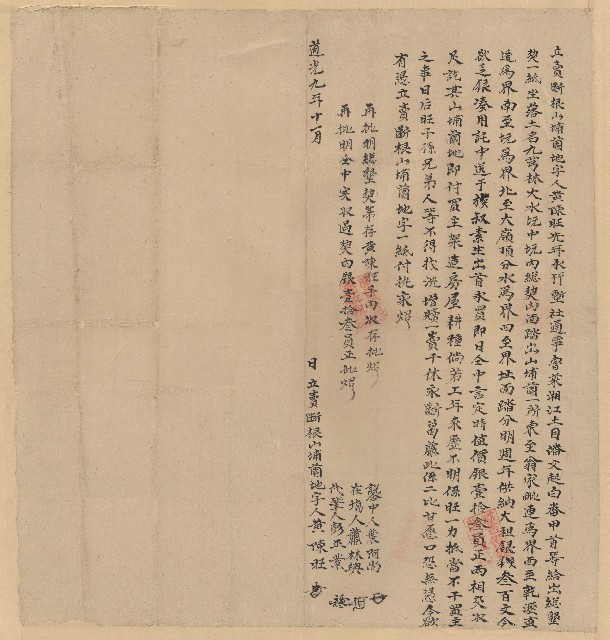 立賣斷根山埔崙地字人黃陳旺先年承行墾社通事音萊湘江土目潘文起白番甲首等給出總墾
契一紙坐落土名九芎林大水坑中坑內總契內洒踏出山埔崙一所東至翁家毗連為界西至乾源直
透為界南至坑為界北至大嶺頂分水為界四至界址面踏分明週年供納大租銀錢叁百文今
欲乏銀湊用託中送于 叔素生出首承買即日仝中言定時值價銀壹拾叁員正兩相交收
足訖其山埔崙地即付買主架造房屋耕種倘若上年來歷不明係旺一力抵當不干買主
之事日后旺子孫兄弟人等不得找洗增贖一賣千休永斷葛藤此係二比甘愿口恐無憑今欲
有憑立賣斷根山埔崙地字一紙付執永炤
再批明總墾契茅存黃陳旺手內收存批炤
再批明仝中實收過契內銀壹拾叁員正批炤
在場人蕭林興
代筆人彭正業
道光九年十一月 日立賣斷根山埔崙地字人黃陳旺